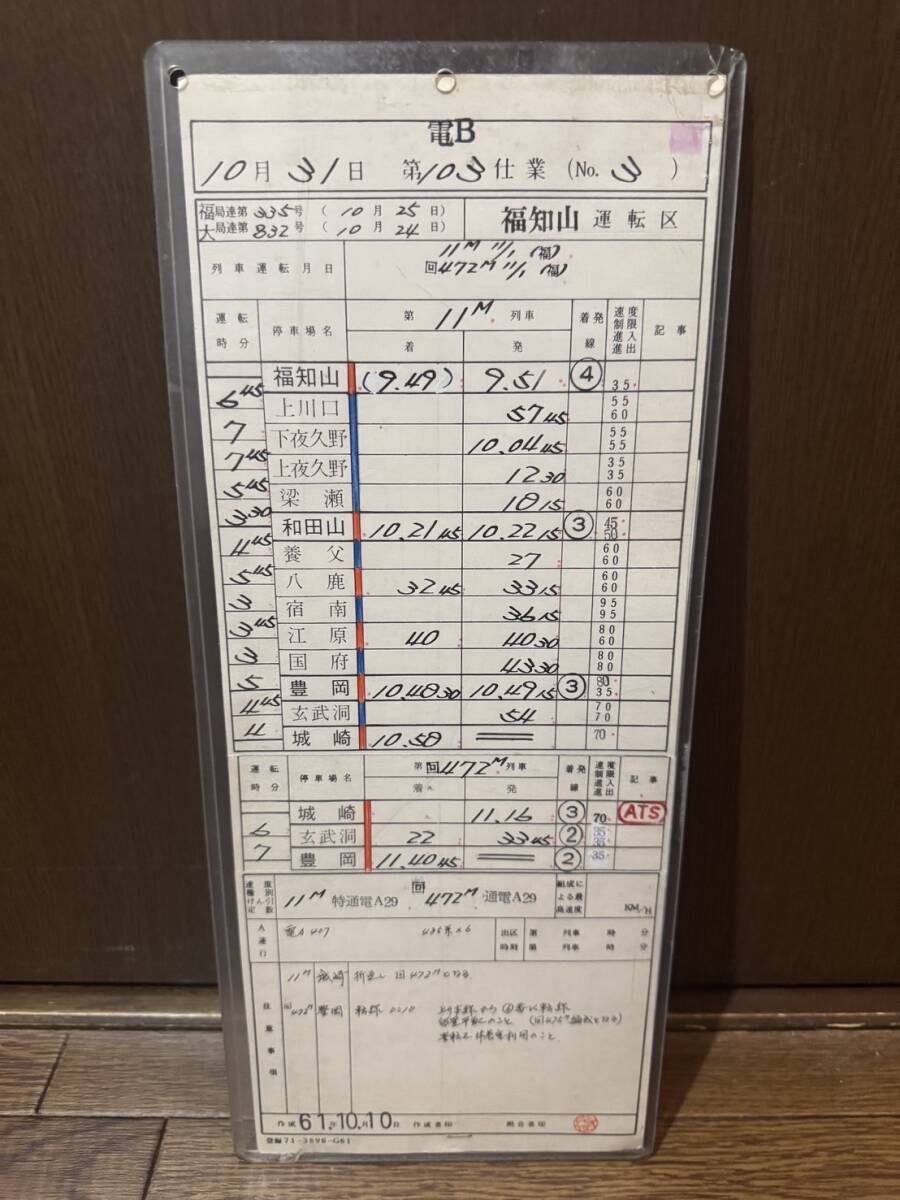 電B
10月31日 第103仕業 (No. 3 )
福局達第335号 ( 10月25日)
大局達第832号 ( 10月24日)
福知山 運転区
列車運転月日 11M 11/1 (福)
回472M 11/1 (福)
運転時分 停車場名 第 11M 列車 着 発 着発線 速度制限進入進出 記事
福知山 (9.49) 9.51 ④ 35
6 45
上川口 57 45 55 60
7
下夜久野 10.04 45 55 55
7 45
上夜久野 12 30 35 35
5 45
梁瀬 18 15 60 60
3 30
和田山 10.21 45 10.22 15 ③ 45 50
4 45
養父 27 60 60
5 45
八鹿 32 45 33 15 60 60
3
宿南 36 15 95 95
3 45
江原 40 40 30 80 60
3
国府 43 30 80 80
5
豊岡 10.48 30 10.49 15 ③ 80 35
4 45
玄武洞 54 70 70
4
城崎 10.58 70
運転時分 停車場名 第回472M列車 着 発 着発線 速度制限進入進出 記事
城崎 11.16 ③ 70 ATS
6
玄武洞 22 33 45 ② 35 35
7
豊岡 11.40 45 ② 35
速度種別けん引定数 11M 特通電A29 回472M 通電A29 組成による最高速度 KM/H
A運行 電A407 485系×6 出区時刻 第 列車 時 分
第 列車 時 分
注意事項
11M 城崎 折返し 回472Mとなる
回472M 豊岡 転線
作成 61年10月10日 作成者印 照合者印
登録71-3896-G61